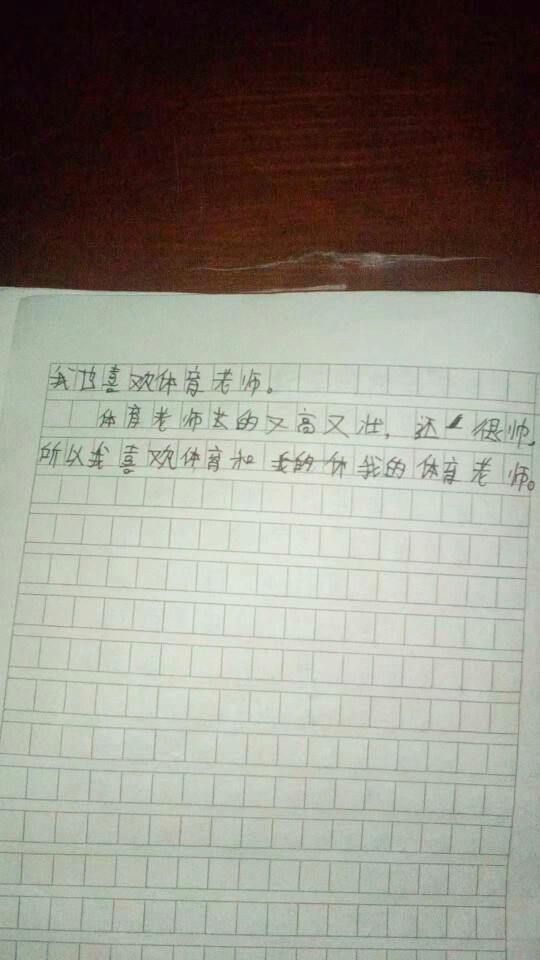 我也喜欢体育老师。
体育老师长的又高又壮，还很帅，
所以我喜欢体育和我的体我的体育老师。